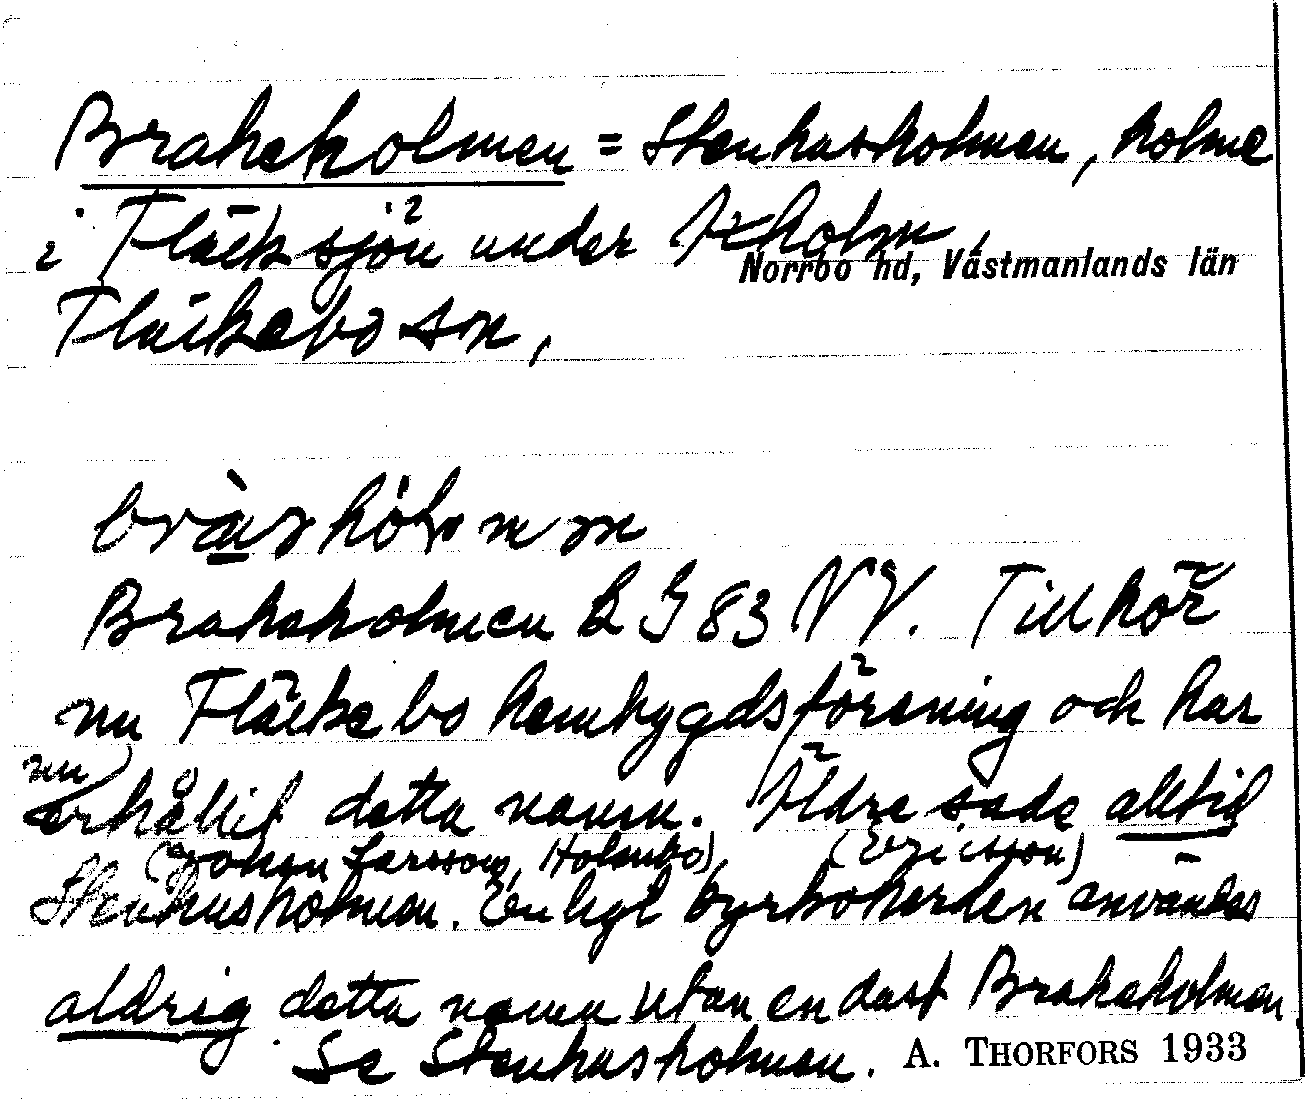 Braheholmen = Stenhusholmen, holme
i Fläcksjön under Axholm,
Norrbo hd, Västmanlands län
Fläckebo sn,
Braheholmen L G 83 NV. Tillhör
nu Fläckebo hembygdsförening och har
nu
erhållit detta namn. Äldre sade alltid
(Johan Larsson, Holmbo), (Ericsson)
Stenhusholmen. Enligt kyrkoherden användes
aldrig detta namn utan endast Braheholmen.
Se Stenhusholmen. A. THORFORS 1933